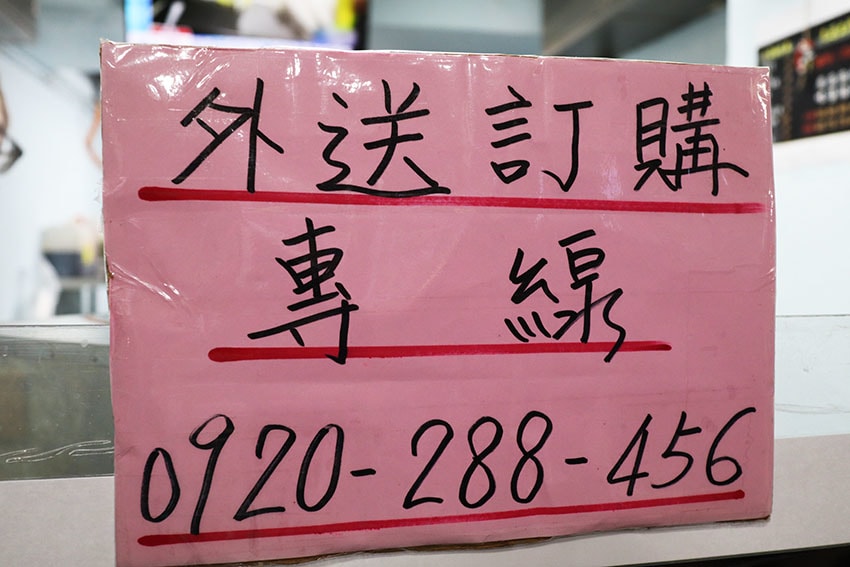 外送訂購
專線
0920-288-456